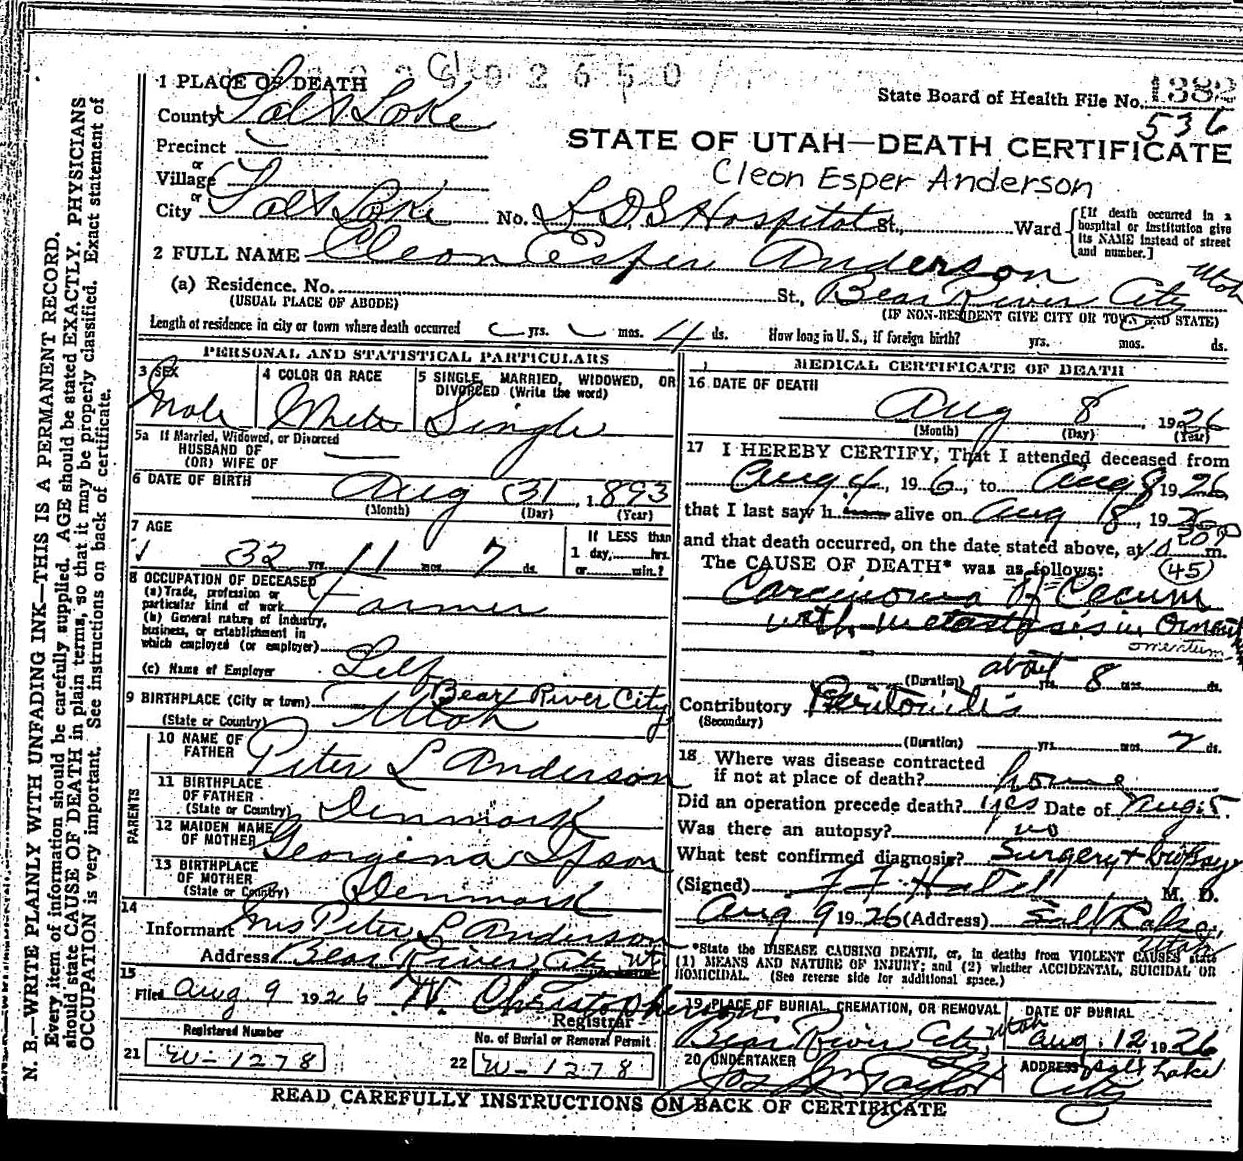 N. B.—WRITE PLAINLY WITH UNFADING INK—THIS IS A PERMANENT RECORD.
Every item of information should be carefully supplied. AGE should be stated EXACTLY. PHYSICIANS
should state CAUSE OF DEATH in plain terms, so that it may be properly classified. Exact statement of
OCCUPATION is very important. See instructions on back of certificate.
1 PLACE OF DEATH
State Board of Health File No. 1382
536
County Salt Lake
STATE OF UTAH—DEATH CERTIFICATE
Precinct
or
Cleon Esper Anderson
Village
or
City Salt Lake No. L D S Hospital St., Ward
[If death occurred in a
hospital or institution give
its NAME instead of street
and number.]
2 FULL NAME Cleon Esper Anderson
(a) Residence. No. St., Bear River City Utah
(USUAL PLACE OF ABODE) (IF NON-RESIDENT GIVE CITY OR TOWN AND STATE)
Length of residence in city or town where death occurred yrs. mos. 4 ds. How long in U. S., if foreign birth? yrs. mos. ds.
PERSONAL AND STATISTICAL PARTICULARS
3 SEX
Male
4 COLOR OR RACE
White
5 SINGLE, MARRIED, WIDOWED, OR
DIVORCED (Write the word)
Single
5a If Married, Widowed, or Divorced
HUSBAND OF
(OR) WIFE OF
6 DATE OF BIRTH Aug 31, 1893
(Month) (Day) (Year)
7 AGE
32 yrs. 11 mos. 7 ds.
If LESS than
1 day, hrs.
or min.?
8 OCCUPATION OF DECEASED
(a) Trade, profession or
particular kind of work Farmer
(b) General nature of Industry,
business, or establishment in
which employed (or employer)
(c) Name of Employer Self
9 BIRTHPLACE (City or town) Bear River City
(State or Country) Utah
PARENTS
10 NAME OF
FATHER Peter L Anderson
11 BIRTHPLACE
OF FATHER
(State or Country) Denmark
12 MAIDEN NAME
OF MOTHER Georgina Ipson
13 BIRTHPLACE
OF MOTHER
(State or Country) Denmark
14
Informant Mrs Peter L Anderson
Address Bear River City Ut.
15
Filed Aug. 9 1926 W. Christopherson
Registrar
Registered Number
21 W-1278
No. of Burial or Removal Permit
22 W-1278
MEDICAL CERTIFICATE OF DEATH
16 DATE OF DEATH
Aug 8, 1926
(Month) (Day) (Year)
17 I HEREBY CERTIFY, That I attended deceased from
Aug 4, 1926, to Aug 8 1926
that I last saw him alive on Aug 8, 1926
and that death occurred, on the date stated above, at m.
The CAUSE OF DEATH* was as follows: 45
Carcinoma of Cecum
with metastasis in Oment
omentum
about
(Duration) yrs. 8 mos. ds.
Contributory Peritonitis
(Secondary)
(Duration) yrs. mos. 2 ds.
18 Where was disease contracted
if not at place of death? home
Did an operation precede death? yes Date of Aug. 5.
Was there an autopsy? no
What test confirmed diagnosis? Surgery +
(Signed) M. D.
Aug 9 1926 (Address) Salt Lake
Utah
*State the DISEASE CAUSING DEATH, or, in deaths from VIOLENT CAUSES state
(1) MEANS AND NATURE OF INJURY; and (2) whether ACCIDENTAL, SUICIDAL OR
HOMICIDAL. (See reverse side for additional space.)
19 PLACE OF BURIAL, CREMATION, OR REMOVAL
Bear River City, Utah
DATE OF BURIAL
Aug. 12, 1926
20 UNDERTAKER
Jos Wm Taylor
ADDRESS Salt Lake
City
READ CAREFULLY INSTRUCTIONS ON BACK OF CERTIFICATE